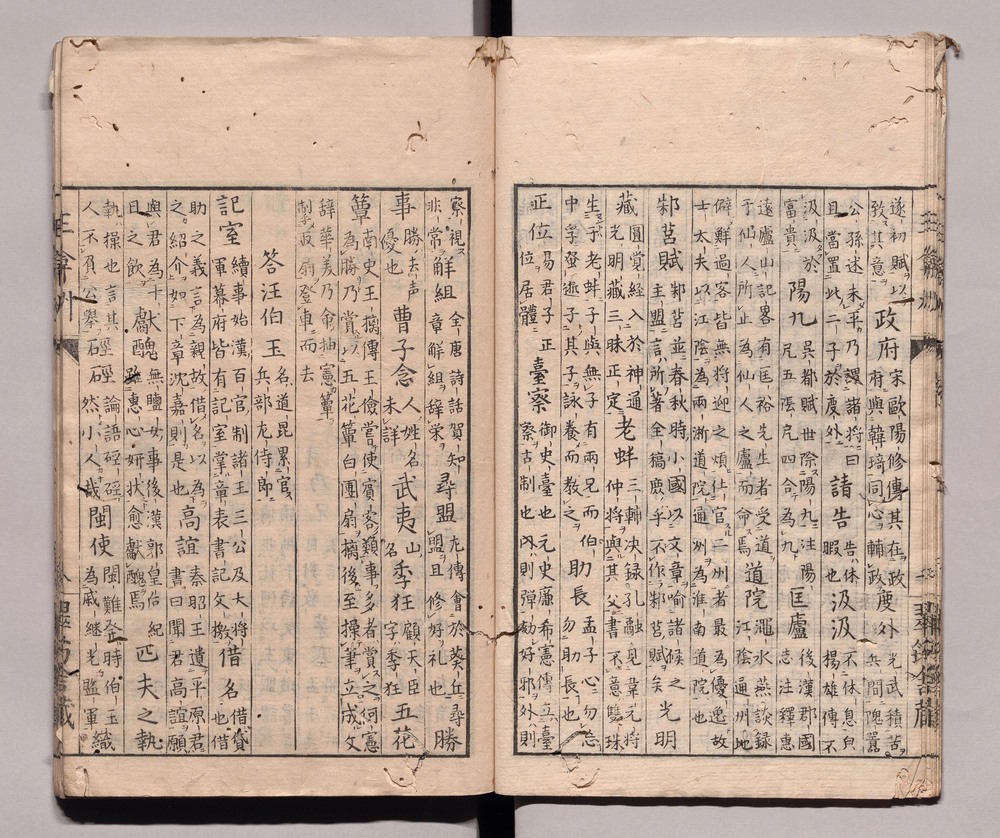 遂初賦以
致其意
政府
宋歐陽修傳其在政
府與韓琦同心輔政
慶外
光武積苦
兵間隗囂
公孫述未平乃謂諸將曰
且當置此二子於度外
請告
告休
暇也
汲汲
不休息自
揚雄傳不
汲汲於
富貴
陽九
吳都賦世際陽九注陽
厄五陰厄四合為九
匡廬
後漢郡國
志注釋惠
遠廬山記畧有匡裕先生者受道
于仙人所止為仙人之廬而命焉
道院
澠水燕談録
江陰通州地
僻鮮過客皆無將迎之煩仕官二州者最為優逸故
士太夫以江陰為兩浙道院通州為淮南道院也
邾莒賦
邾莒並春秋時小國以文章喻諸候之
主盟言所著全稿厪乎不作邾莒賦矣
光明
藏
圓覺經入於神通大
光明藏三昧正定
老蚌
三輔決録孔融見韋元將
仲將與其父書不意雙珠
生于老蚌
子與
無子有兩兄而伯
子其子詠養而教之
助長
孟子心勿忘
勿助長也
正位
易君子正
位居體
臺察
御史臺也元史廉希憲傳立臺
察古制也內則彈劾好邪外則
察視
非常
解組
全唐詩話賀知
章解組辭榮
尋盟
左傳會於葵丘尋
盟且修好禮也
勝
事
勝去声
優也
曹子念
人姓名
未詳
武夷
山
名
季狂
顧天臣
字季狂
五花
簟
南史王摛傳王儉嘗使賓客隷事多者賞之何憲
為勝乃賞以五花簟白團扇摛後至操筆立成文
辭華美乃命抽憲簟
掣取扇登車而去
答汪伯玉
名道昆累官
兵部左侍郎
記室
續事始漢百官制諸王三公及大將
軍幕府皆有記室掌章表書記文檄
借名
借貸
也借
助之義言為親故借名以為
之紹介如下章沈嘉則是也
高誼
秦昭王遺平原君
書曰聞君高誼願
與君為十
日之飲
獻醜
無鹽女事後漢郭皇后紀
雖惠心妍狀愈獻醜焉
匹夫之執
執操也言其
人不負公舉
硜硜
論語硜硜
然小人哉
閩使
閩難發時伯玉
為戚継光監軍
織